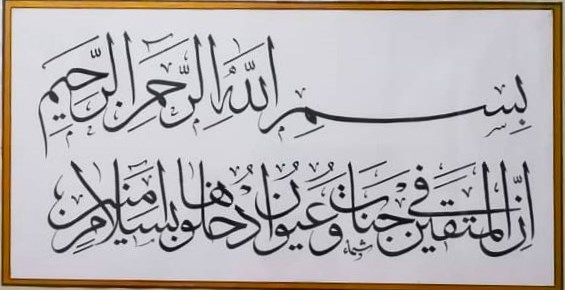 بِسمِ اللَّهِ الرَّحمَنِ الرَّحِيمِ
إنَّ المتقين في جنات وعُيُون ادخلوها بسلام آمنين